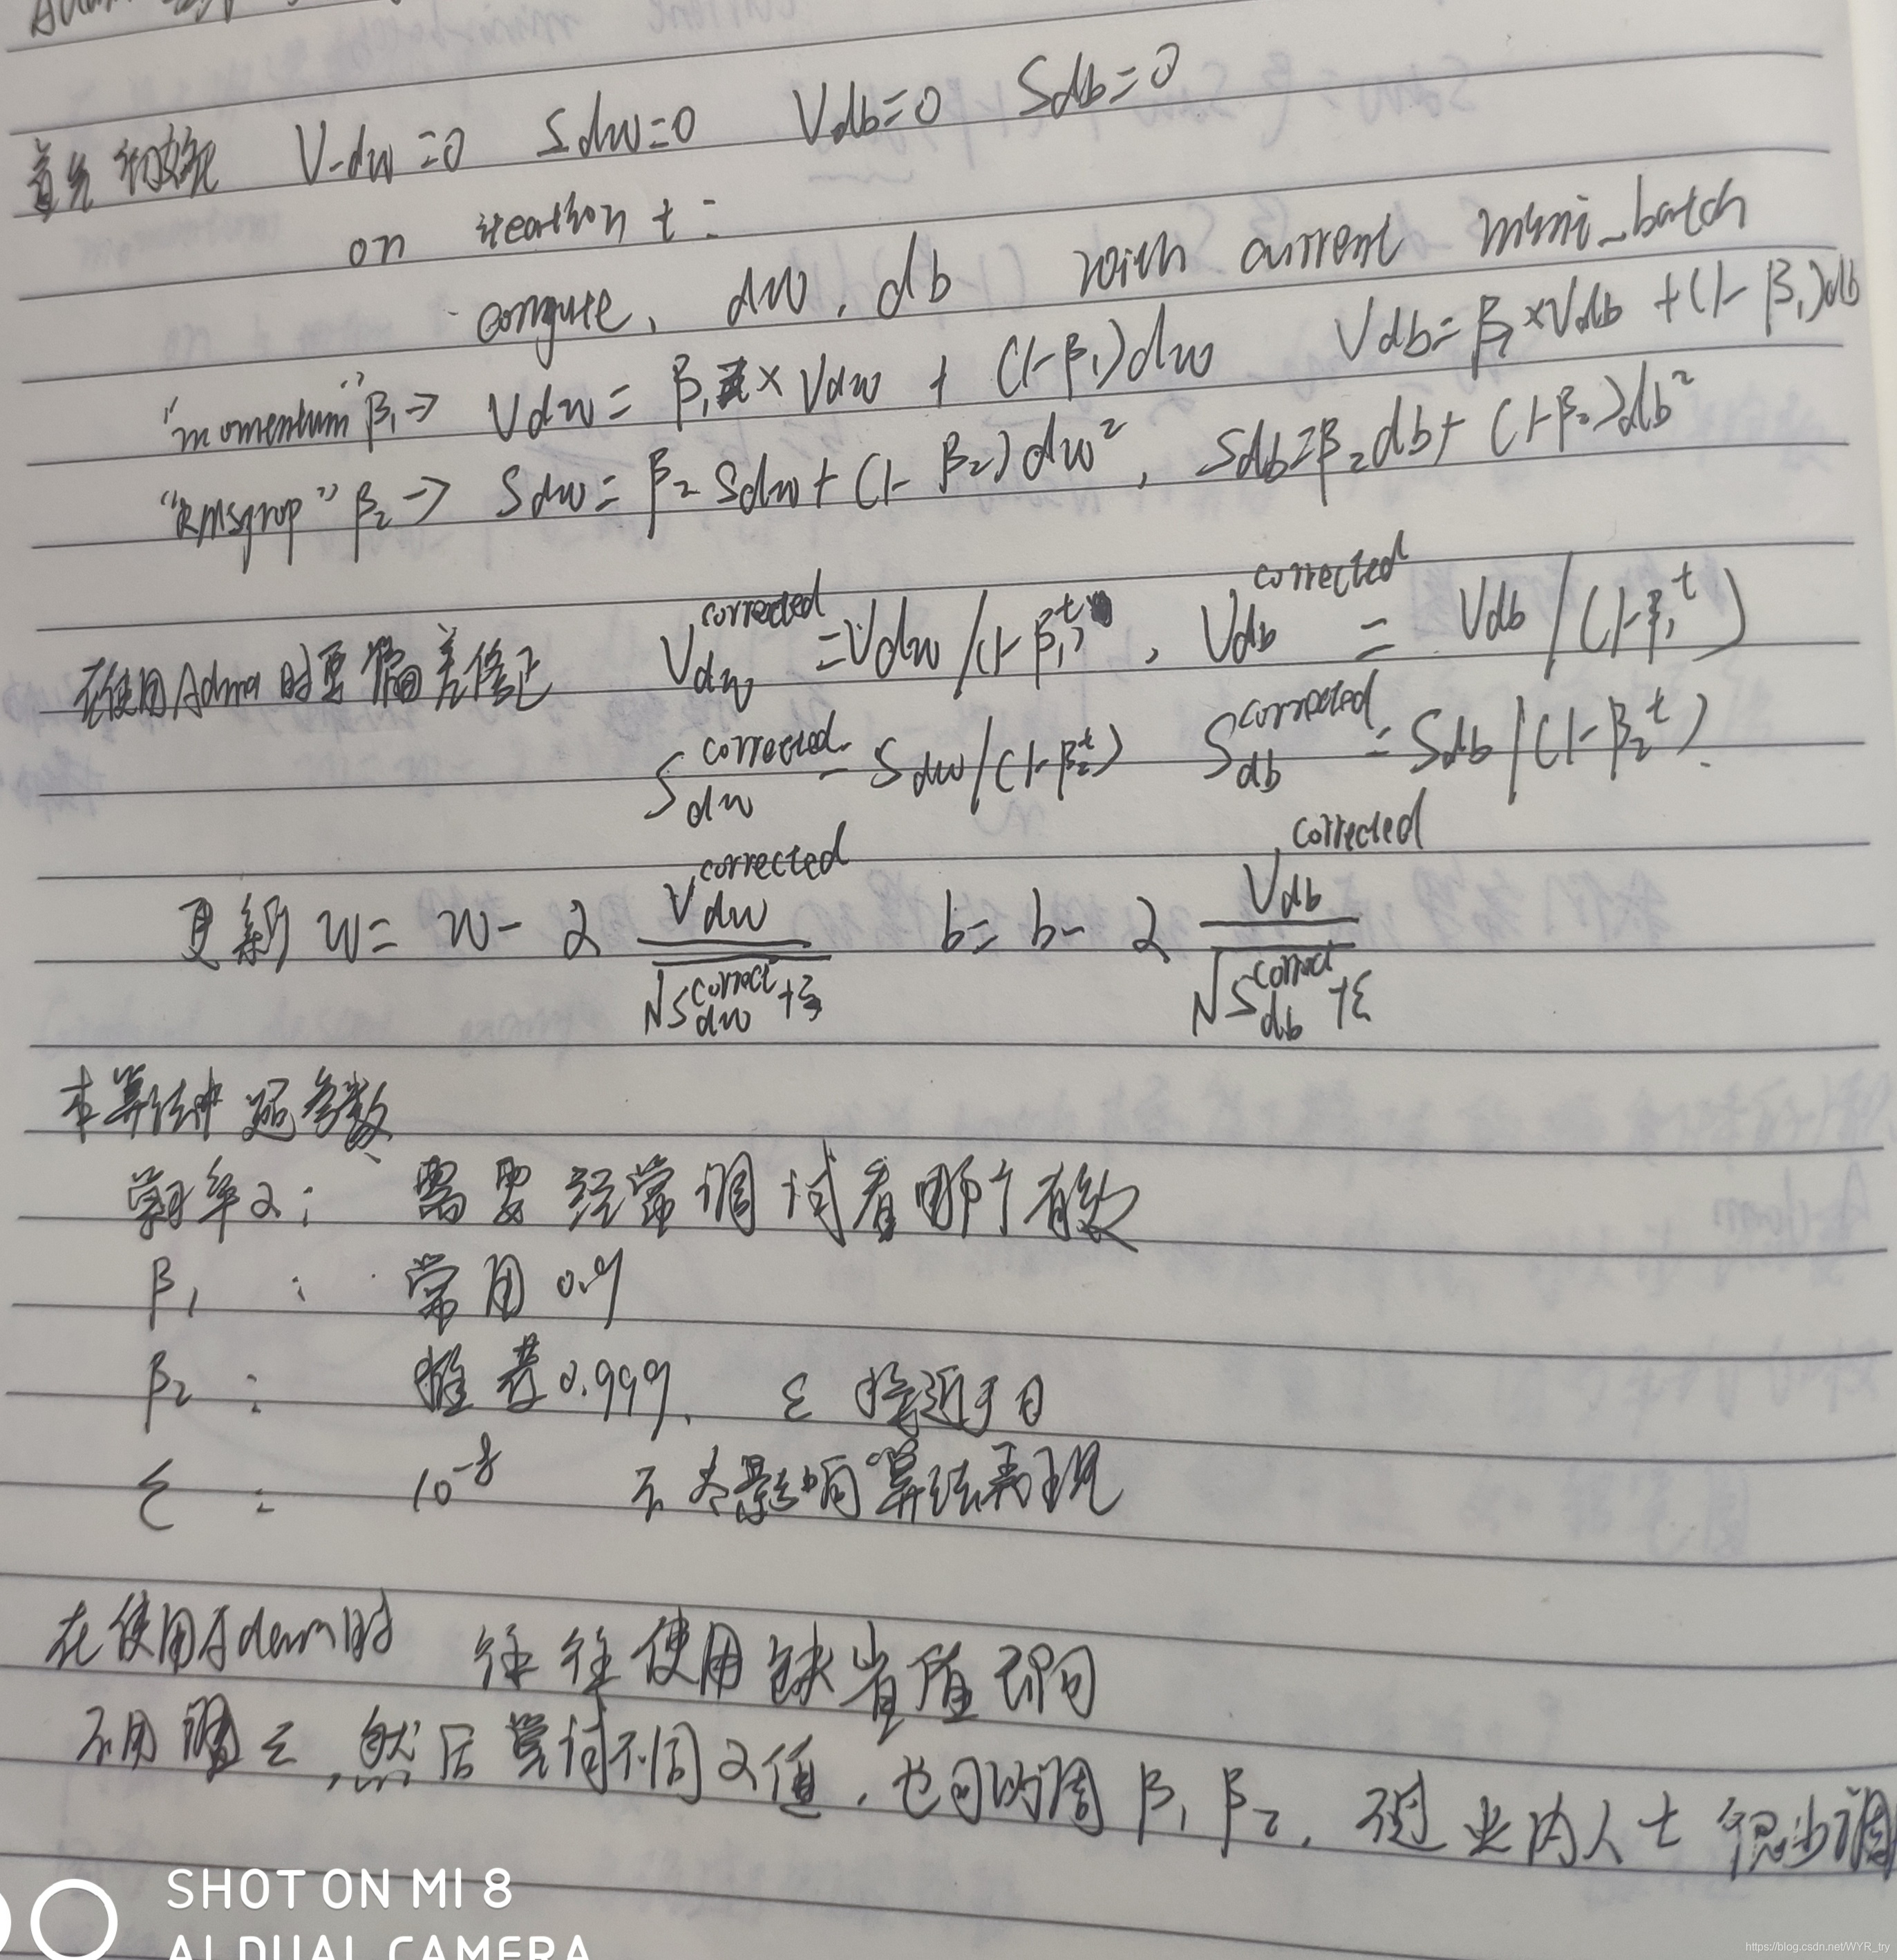 首先初始化 V-dw=0 Sdw=0 Vdb=0 Sdb=0
on iteartion t:
compute, dw, db with current mini_batch
"momentum" β₁→ Vdw = β₁ × Vdw + (1-β₁)dw Vdb = β₁×Vdb +(1-β₁)db
"RMSprop" β₂→ Sdw = β₂ Sdw+(1-β₂)dw², Sdb=β₂db+(1-β₂)db²
在使用Adma时要偏差修正 V_dw^corrected =Vdw/(1-β₁)^t, V_db^corrected = Vdb/(1-β₁^t)
S_dw^corrected = Sdw/(1-β₂^t) S_db^corrected = Sdb/(1-β₂^t).
更新 w = w-α V_dw^corrected / √S_dw^correct+ε b=b-α V_db^corrected / √S_db^correct+ε
本算法中超参数
学习率α: 需要经常调试看哪个有效
β₁ : 常用0.9
β₂ : 推荐0.999. ε 接近于0
ε : 10^-8 不太影响算法表现
在使用Adam时 往往使用缺省值即可
不用调ε,然后尝试不同α值,也可以调β₁ β₂,不过业内人士很少调
SHOT ON MI 8
AI DUAL CAMERA
https://blog.csdn.net/WYR_try